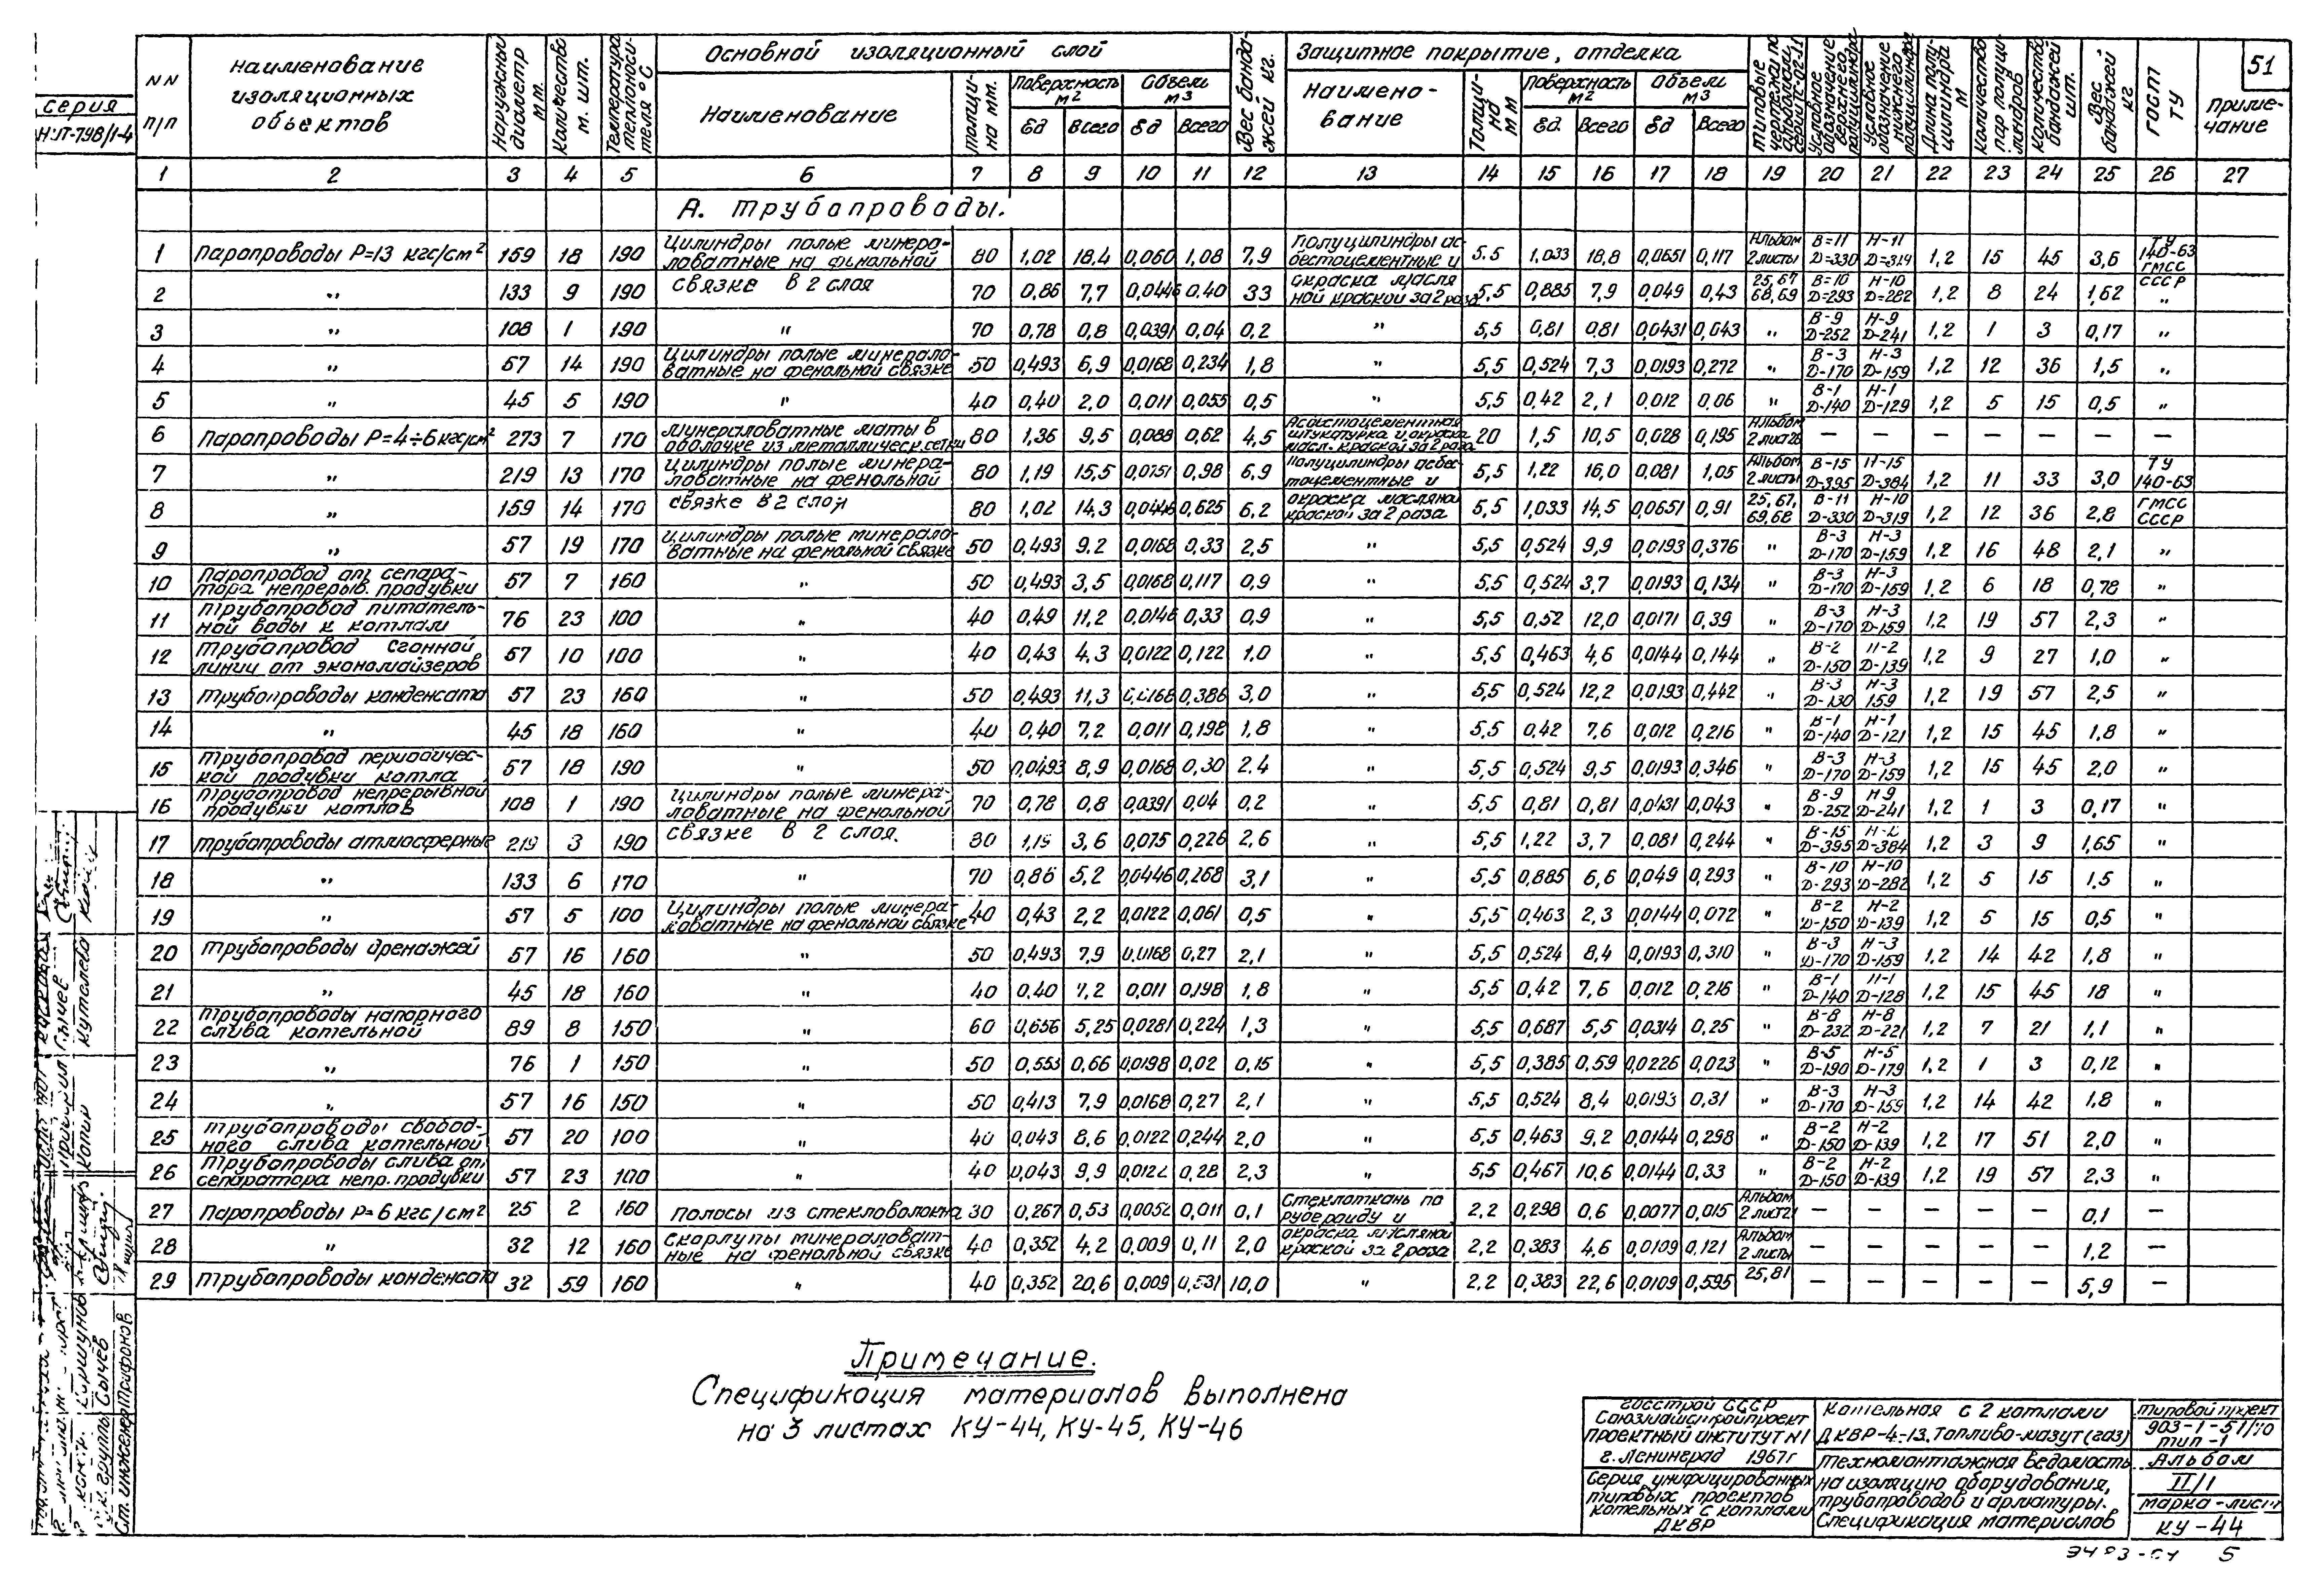 51
серия
НИТ-798/1-4
NN п/п
наименование изоляционных объектов
Наружный диаметр мм.
Количество м. шт.
Температура теплоносителя °С
Основной изоляционный слой
Наименование
толщина мм.
Поверхность м²
Объем м³
Ед
Всего
Ед
Всего
Вес бандажей кг.
Защитное покрытие, отделка
Наименование
Толщина мм
Поверхность м²
Объем м³
Ед.
Всего
Ед
Всего
Длина полуцилиндра м
Количество пар полуцилиндров
Количество бандажей шт.
Вес бандажей кг
ГОСТ ТУ
Примечание
1 2 3 4 5 6 7 8 9 10 11 12 13 14 15 16 17 18 19 20 21 22 23 24 25 26 27
А. Трубопроводы.
1 Паропроводы Р=13 кгс/см² 159 18 190 Цилиндры полые минераловатные на фенольной 80 1,02 18,4 0,060 1,08 7,9 Полуцилиндры асбестоцементные и 5.5 1,033 18,8 0,0651 0,117 Альбом 2 листы В=11 Д=330 Н-11 Д=319 1,2 15 45 3,6 ТУ 140-63 ГМСС
2 " 133 9 190 связке в 2 слоя 70 0,86 7,7 0,0446 0.40 33 окраска масляной краской за 2 раза 5,5 0,885 7,9 0,049 0,43 25,67 68,69 В=10 Д=293 Н-10 Д=282 1,2 8 24 1,62 СССР "
3 " 108 1 190 " 70 0,78 0,8 0,0391 0,04 0,2 " 5,5 0,81 0,81 0,0431 0,043 " В-9 Д-252 Н-9 Д-241 1,2 1 3 0,17 "
4 " 57 14 190 Цилиндры полые минераловатные на фенольной связке 50 0,493 6,9 0,0168 0,234 1,8 " 5,5 0,524 7,3 0,0193 0,272 " В-3 Д-170 Н-3 Д-159 1,2 12 36 1,5 "
5 " 45 5 190 " 40 0,40 2,0 0,011 0,055 0,5 " 5,5 0,42 2,1 0.012 0,06 " В-1 Д-140 Н-1 Д-129 1,2 5 15 0,5 "
6 Паропроводы Р=4÷6 кгс/см² 273 7 170 минераловатные маты в оболочке из металлическ. сетки 80 1,36 9,5 0,088 0,62 4,5 Асбестоцементная штукатурка и окраска масл. краской за 2 раза 20 1,5 10,5 0,028 0,195 Альбом 2 лист 26 — — — — — — —
7 " 219 13 170 Цилиндры полые минераловатные на фенольной 80 1,19 15,5 0,0751 0,98 6,9 Полуцилиндры асбестоцементные и 5,5 1,22 16,0 0,081 1,05 Альбом 2 листы В-15 Д-395 Н-15 Д-384 1,2 11 33 3,0 ТУ 140-63
8 " 159 14 170 связке в 2 слоя 80 1,02 14,3 0,0446 0,625 6,2 окраска масляной краской за 2 раза 5,5 1,033 14,5 0,0651 0,91 25,67, 69,68 В-11 Д-330 Н-10 Д-319 1,2 12 36 2,8 ГМСС СССР
9 " 57 19 170 Цилиндры полые минераловатные на фенольной связке 50 0,493 9,2 0,0168 0,33 2,5 " 5,5 0,524 9,9 0,0193 0,376 " В-3 Д-170 Н-3 Д-159 1,2 16 48 2,1 "
10 Паропровод от сепаратора непрерыв. продувки 57 7 160 " 50 0,493 3,5 0,0168 0,117 0,9 " 5,5 0,524 3,7 0,0193 0,134 " В-3 Д-170 Н-3 Д-159 1,2 6 18 0,78 "
11 Трубопровод питательной воды к котлам 76 23 100 " 40 0,49 11,2 0,0146 0,33 0,9 " 5,5 0,52 12,0 0,0171 0,39 " В-3 Д-170 Н-3 Д-159 1,2 19 57 2,3 "
12 Трубопровод сгонной линии от экономайзеров 57 10 100 " 40 0,43 4,3 0,0122 0,122 1,0 " 5,5 0,463 4,6 0,0144 0,144 " В-2 Д-150 Н-2 Д-139 1,2 9 27 1,0 "
13 Трубопроводы конденсата 57 23 160 " 50 0,493 11,3 0,0168 0,386 3,0 " 5,5 0,524 12,2 0,0193 0,442 " В-3 Д-130 Н-3 159 1,2 19 57 2,5 "
14 " 45 18 160 " 40 0,40 7,2 0,011 0,198 1,8 " 5,5 0,42 7,6 0,012 0,216 " В-1 Д-140 Н-1 Д-121 1,2 15 45 1,8 "
15 Трубопровод периодической продувки котла 57 18 190 " 50 0,0493 8,9 0,0168 0,30 2.4 " 5,5 0,524 9,5 0,0193 0,346 " В-3 Д-170 Н-3 Д-159 1,2 15 45 2,0 "
16 Трубопровод непрерывной продувки котлов 108 1 190 Цилиндры полые минераловатные на фенольной 70 0,78 0,8 0,0391 0,04 0,2 " 5,5 0,81 0,81 0,0431 0,043 " В-9 Д-252 Н9 Д-241 1,2 1 3 0,17 "
17 Трубопроводы атмосферные 219 3 190 связке в 2 слоя. 80 1,19 3,6 0,075 0,226 2,6 " 5,5 1,22 3,7 0,081 0,244 " В-15 Д-395 Д-384 1,2 3 9 1,65 "
18 " 133 6 170 " 70 0,86 5,2 0,0446 0,268 3,1 " 5,5 0,885 6,6 0,049 0,293 " В-10 Д-293 Н-10 Д-282 1,2 5 15 1.5 "
19 " 57 5 100 Цилиндры полые минераловатные на фенольной связке 40 0,43 2,2 0,0122 0,061 0,5 " 5,5 0,463 2,3 0,0144 0,072 " В-2 Д-150 Н-2 Д-139 1,2 5 15 0,5 "
20 Трубопроводы дренажей 57 16 160 " 50 0,493 7,9 0,0168 0,27 2,1 " 5,5 0,524 8,4 0,0193 0,310 " В-3 Д-170 Н-3 Д-159 1,2 14 42 1,8 "
21 " 45 18 160 " 40 0.40 7,2 0,011 0,198 1,8 " 5,5 0,42 7,6 0,012 0,216 " В-1 Д-140 Н-1 Д-128 1,2 15 45 18 "
22 Трубопроводы напорного слива котельной 89 8 150 " 60 0,656 5,25 0,0281 0,224 1,3 " 5,5 0,687 5,5 0,0314 0,25 " В-8 Д-232 Н-8 Д-221 1,2 7 21 1,1 "
23 " 76 1 150 " 50 0,553 0,66 0,0198 0,02 0,15 " 5,5 0,385 0,59 0,0226 0,023 " В-5 Д-190 Н-5 Д-179 1,2 1 3 0,12 "
24 " 57 16 150 " 50 0,413 7,9 0,0168 0,27 2,1 " 5,5 0,524 8,4 0,0193 0,31 " В-3 Д-170 Н-3 Д-159 1,2 14 42 1.8 "
25 Трубопроводы свободного слива котельной 57 20 100 " 40 0,043 8,6 0,0122 0,244 2,0 " 5,5 0,463 9,2 0,0144 0,298 " В-2 Д-150 Н-2 Д-139 1,2 17 51 2,0 "
26 Трубопроводы слива от сепаратора непр. продувки 57 23 100 " 40 0,043 9,9 0,0122 0,28 2,3 " 5,5 0,467 10,6 0,0144 0,33 " В-2 Д-150 Н-2 Д-139 1,2 19 57 2,3 "
27 Паропроводы Р=6 кгс/см² 25 2 160 полосы из стекловолокна 30 0,267 0,53 0,0052 0,011 0,1 Стеклоткань по рубероиду и 2,2 0,298 0,6 0,0077 0,015 Альбом 2 лист 21 — — — — — 0,1 —
28 " 32 12 160 Скорлупы минераловатные на фенольной связке 40 0,352 4,2 0,009 0,11 2,0 окраска масляной краской за 2 раза 2,2 0,383 4,6 0,0109 0,121 Альбом 2 листы — — — — — 1,2 —
29 Трубопроводы конденсата 32 59 160 " 40 0,352 20,6 0,009 0,531 10,0 " 2.2 0,383 22,6 0,0109 0,595 25,81 — — — — — 5,9 —
Примечание.
Спецификация материалов выполнена
на 3 листах КУ-44, КУ-45, КУ-46
Госстрой СССР
Союзмашстройпроект
проектный институт N1
г. Ленинград 1967г
Серия унифицированных
типовых проектов
котельных с котлами
ДКВР
Котельная с 2 котлами
ДКВР-4-13. Топливо-мазут (газ)
Техмонтажная ведомость
на изоляцию оборудования,
трубопроводов и арматуры.
Спецификация материалов
типовой проект
903-1-51/70
тип-1
Альбом
II/1
марка-лист
КУ-44
5